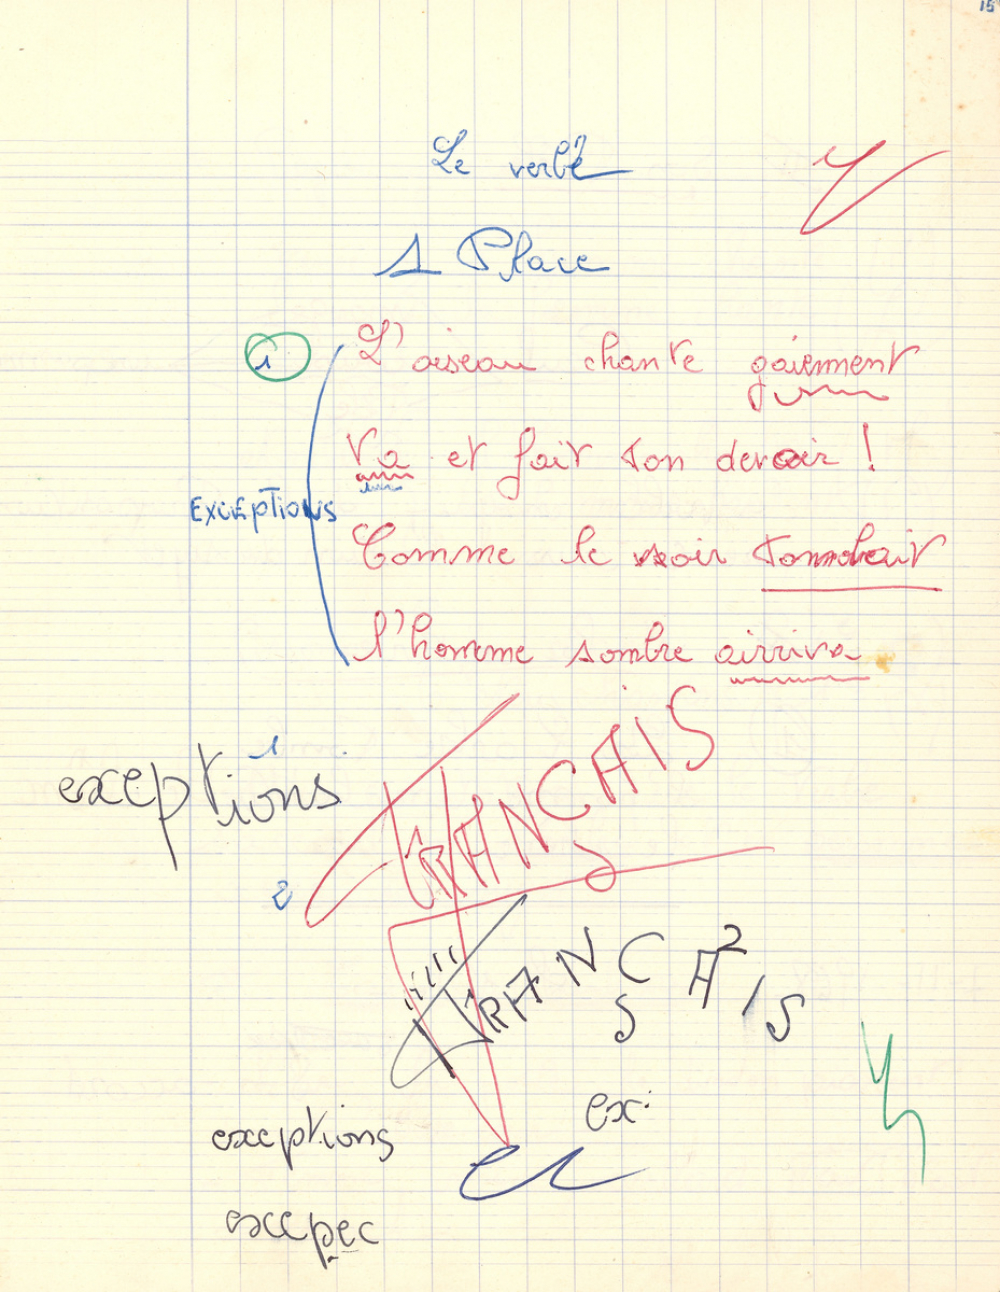 15
Le verbe
1 Place
1 L'oiseau chante gaiement
Va et fait ton devoir !
EXCEPTIONS
Comme le soir tombait
l'homme sombre arriva
1
exceptions
FRANÇAIS
2
FRANÇAIS
2
ex:
exceptions
excepec